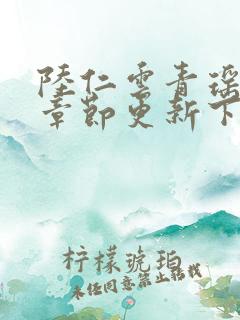 陸仁雲青瑶
章節更新下
柠檬琥珀
未经同意禁止转载